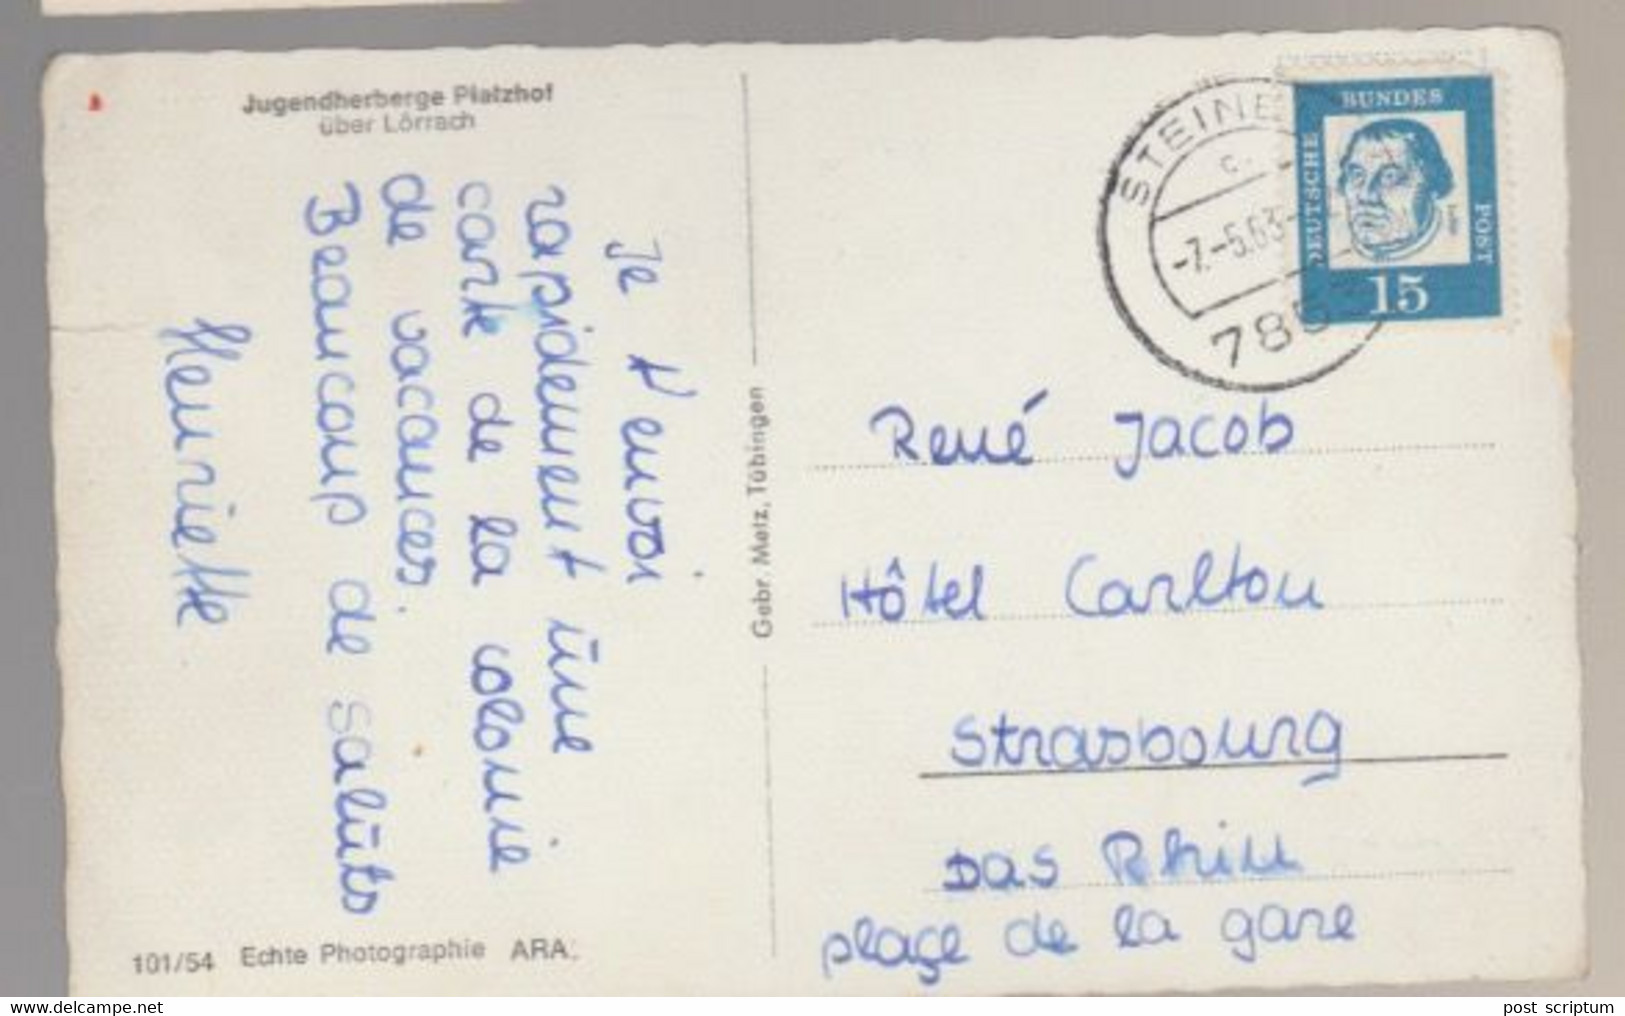 Jugendherberge Platzhof
über Lörrach
Je t'envoi
rapidement une
carte de la colonie
de vacances.
Beaucoup de saluts
Henriette
101/54 Echte Photographie ARA.
Gebr. Metz, Tübingen
STEINE
-7.-5.63-
785
DEUTSCHE BUNDES POST
15
René Jacob
Hôtel Carlton
Strasbourg
Bas Rhin
plaçe de la gare
post scriptum